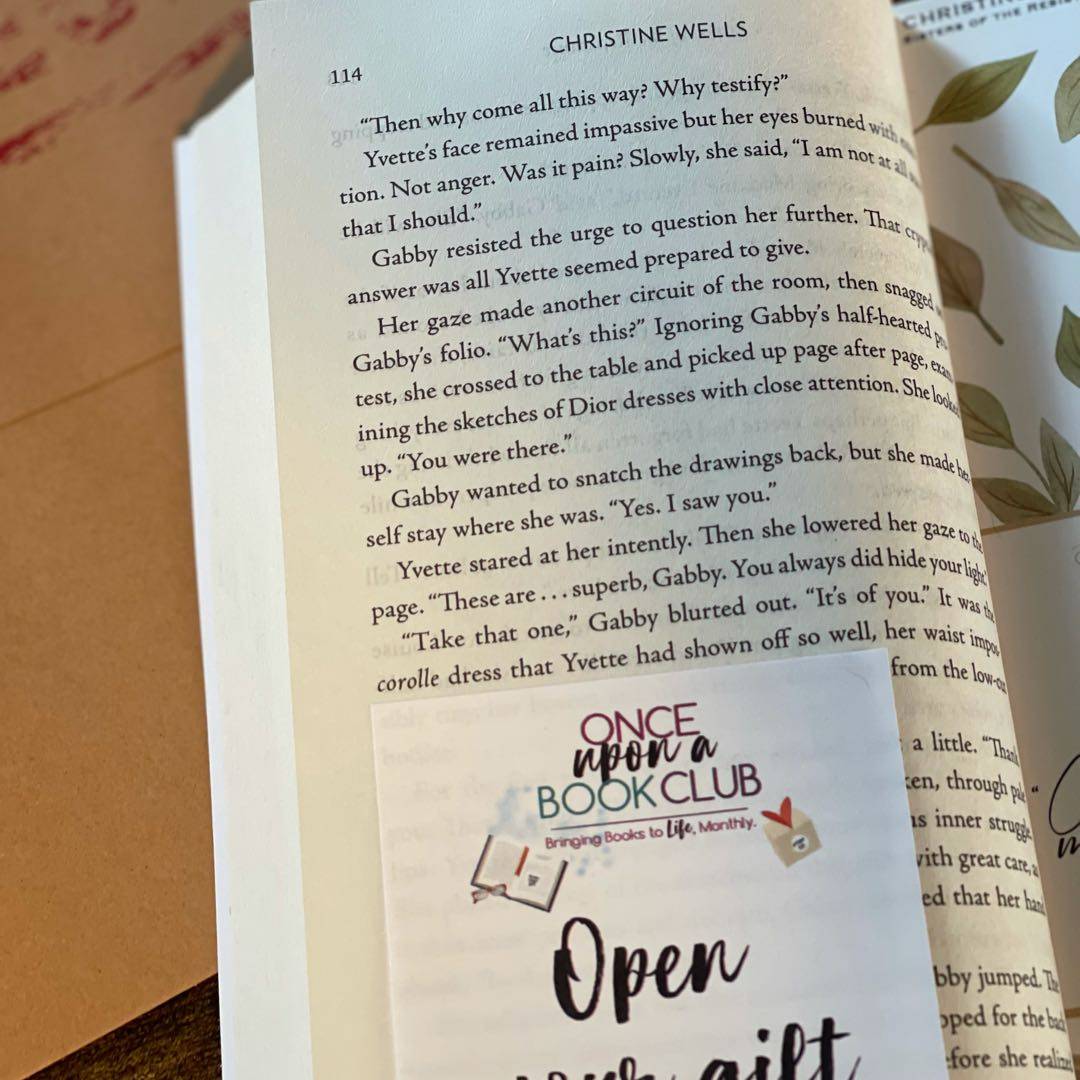 CHRISTINE WELLS
114
“Then why come all this way? Why testify?”
Yvette’s face remained impassive but her eyes burned with
tion. Not anger. Was it pain? Slowly, she said, “I am not at all
that I should.”
Gabby resisted the urge to question her further. That
answer was all Yvette seemed prepared to give.
Her gaze made another circuit of the room, then snagged
Gabby’s folio. “What’s this?” Ignoring Gabby’s half-hearted
test, she crossed to the table and picked up page after page,
ining the sketches of Dior dresses with close attention. She
up. “You were there.”
Gabby wanted to snatch the drawings back, but she made
self stay where she was. “Yes. I saw you.”
Yvette stared at her intently. Then she lowered her gaze to
page. “These are . . . superb, Gabby. You always did hide your
“Take that one,” Gabby blurted out. “It’s of you.” It was
corolle dress that Yvette had shown off so well, her waist
from the
a little.
through
inner
with great care,
that her
jumped.
for the
she
ONCE
upon a
BOOK CLUB
Bringing Books to Life, Monthly.
Open
gift
SISTERS OF THE